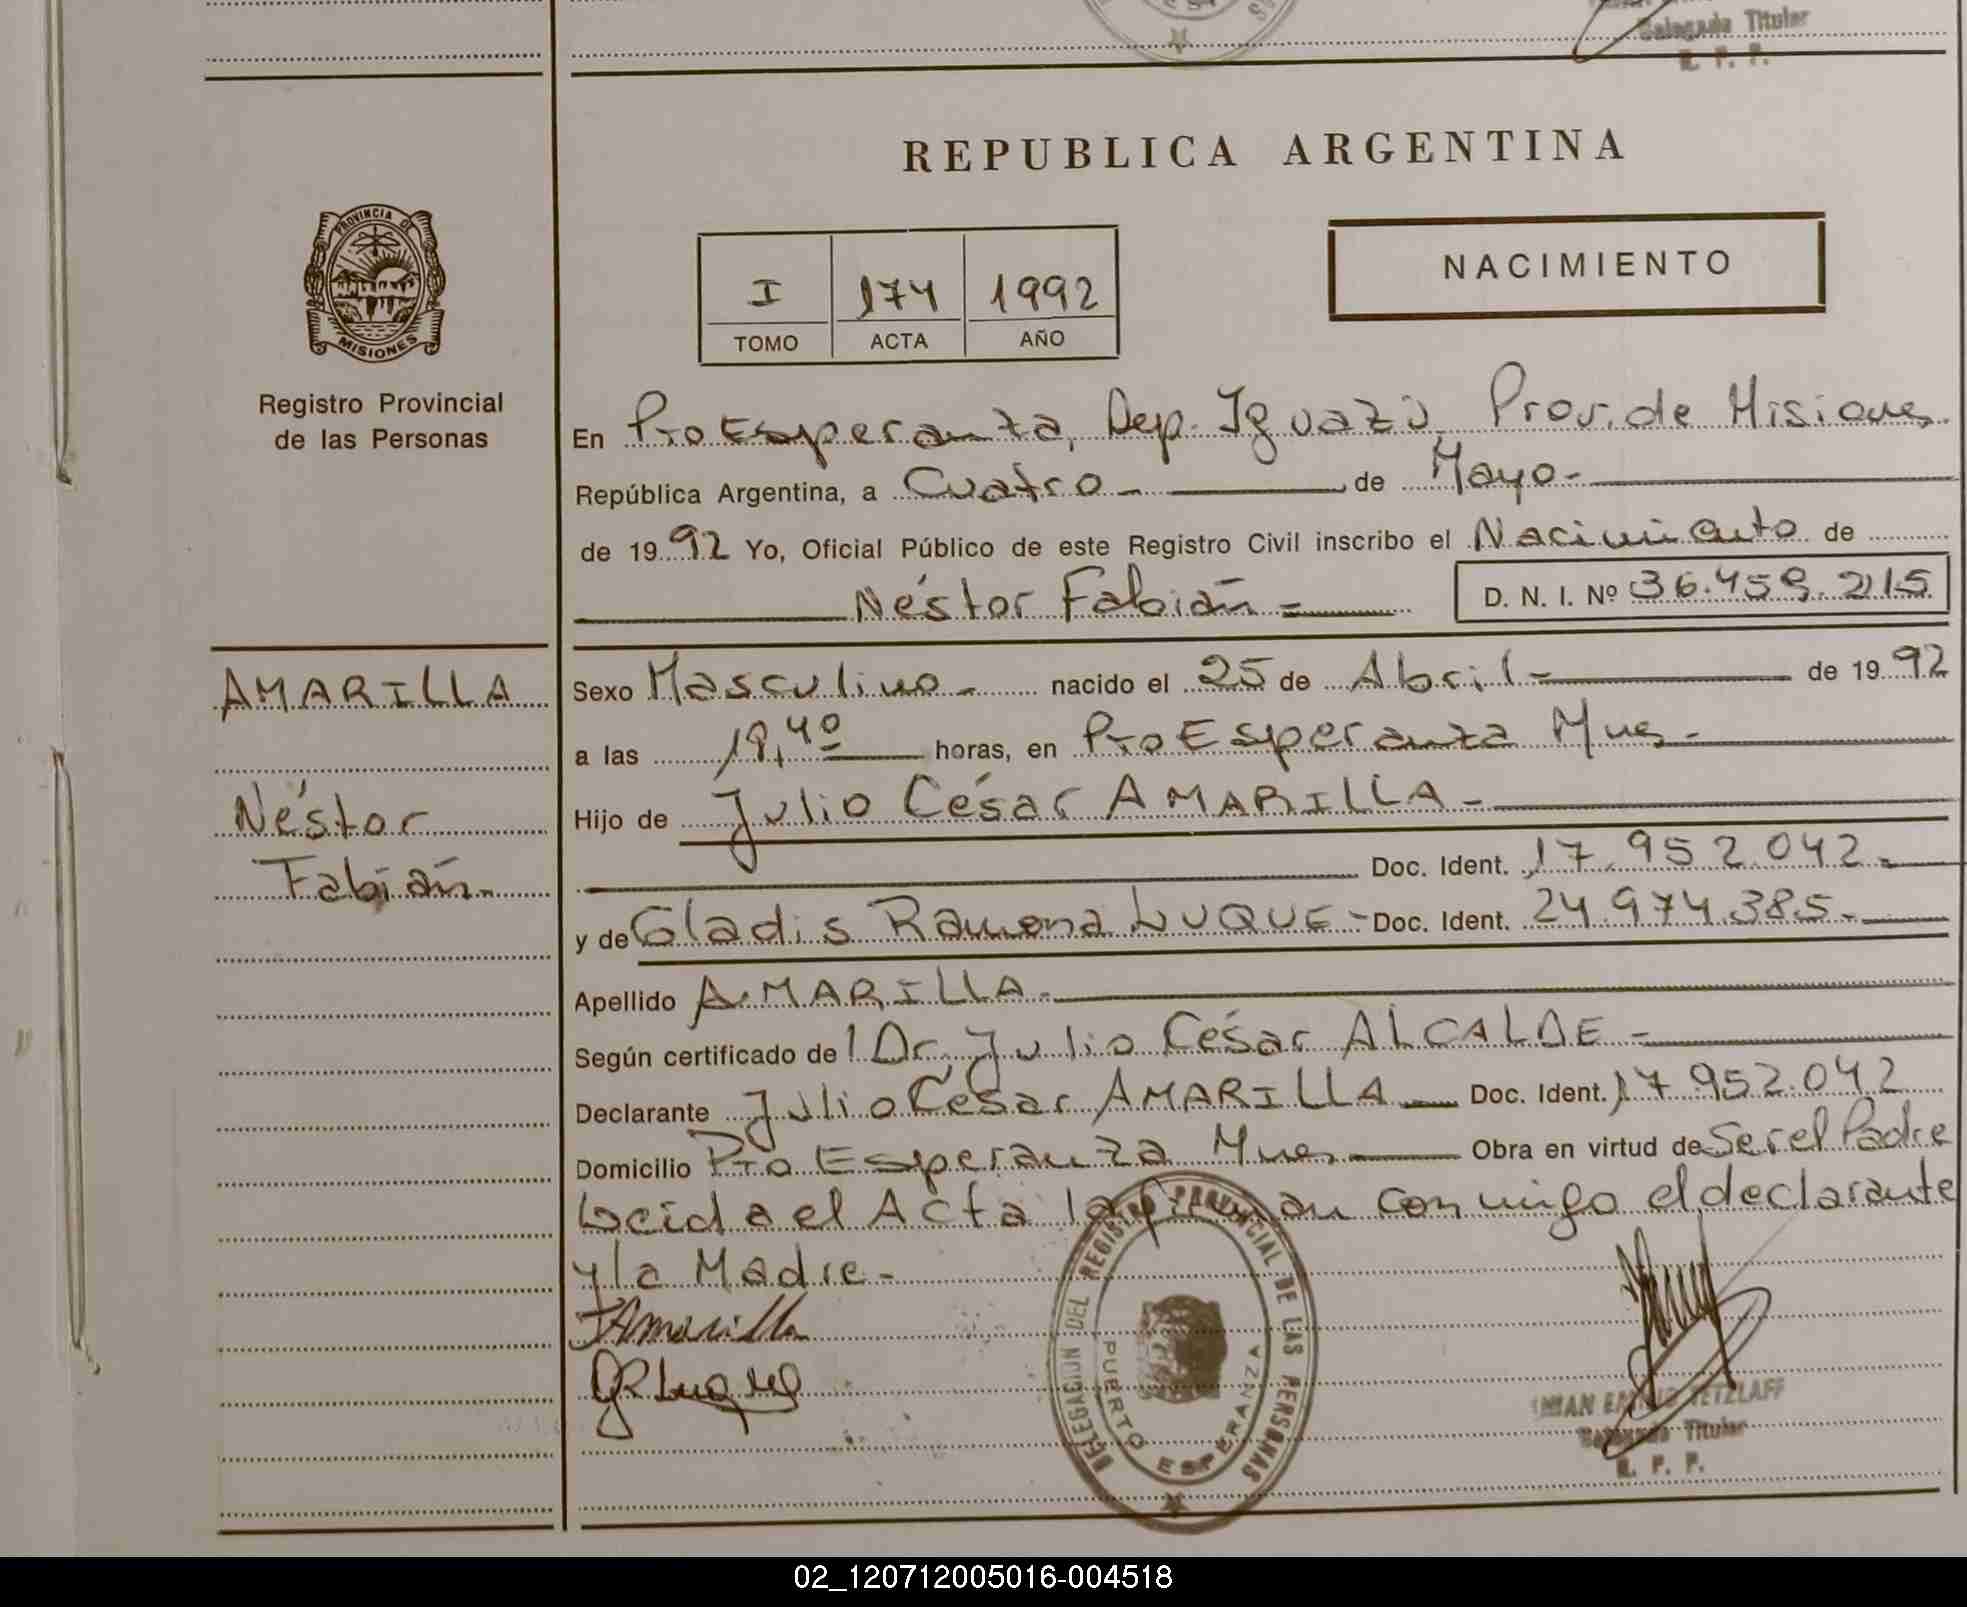 Delegada Titular
R. P. P.
REPUBLICA ARGENTINA
PROVINCIA DE
MISIONES
Registro Provincial
de las Personas
I 174 1992
TOMO ACTA AÑO
NACIMIENTO
En Pto Esperanza, Dep. Iguazú Prov. de Misiones
República Argentina, a Cuatro - de Mayo -
de 1992 Yo, Oficial Público de este Registro Civil inscribo el Nacimiento de
Néstor Fabián = D. N. I. Nº 36.459.215
AMARILLA
Néstor
Fabián -
Sexo Masculino - nacido el 25 de Abril - de 1992
a las 18,40 horas, en Pto Esperanza Mnes -
Hijo de Julio César AMARILLA -
Doc. Ident. 17.952.042 -
y de Gladis Ramona LUQUE - Doc. Ident. 24.974.385 -
Apellido AMARILLA -
Según certificado del Dr. Julio César ALCALDE -
Declarante Julio César AMARILLA Doc. Ident. 17.952.042
Domicilio Pto Esperanza Mnes Obra en virtud de Ser el Padre
Leida el Acta la firman conmigo el declarante
y la Madre -
JAmarilla
GRLuque
DELEGACION DEL REGISTRO PROVINCIAL DE LAS PERSONAS
PUERTO ESPERANZA
TETZLAFF
Delegada Titular
R. P. P.
02_120712005016-004518